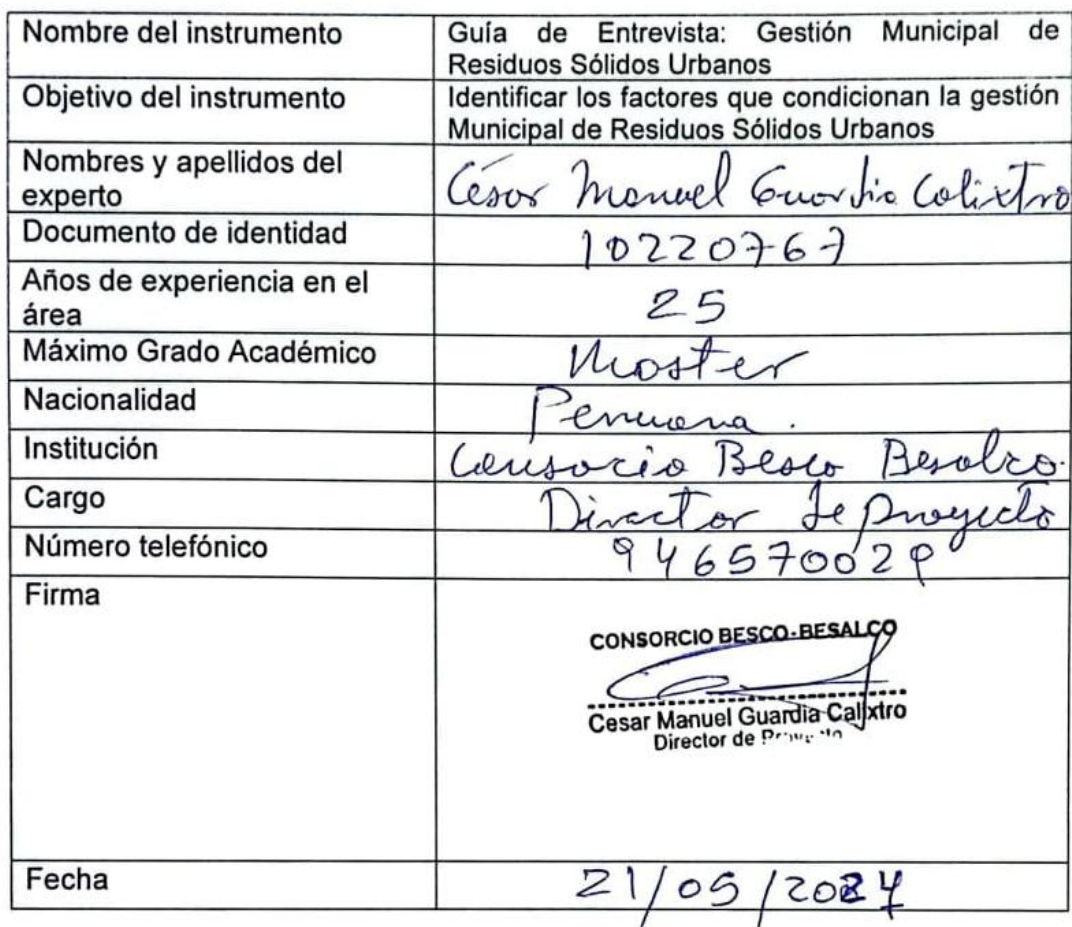 Nombre del instrumento
Guía de Entrevista: Gestión Municipal de
Residuos Sólidos Urbanos
Objetivo del instrumento
Identificar los factores que condicionan la gestión
Municipal de Residuos Sólidos Urbanos
Nombres y apellidos del
experto
César Manuel Guardia Calixtro
Documento de identidad
10220767
Años de experiencia en el
área
25
Máximo Grado Académico
Master
Nacionalidad
Peruana.
Institución
Consorcio Besco Besalco.
Cargo
Director de proyecto
Número telefónico
946570029
Firma
CONSORCIO BESCO-BESALCO
Cesar Manuel Guardia Calixtro
Director de
Fecha
21/05/2024